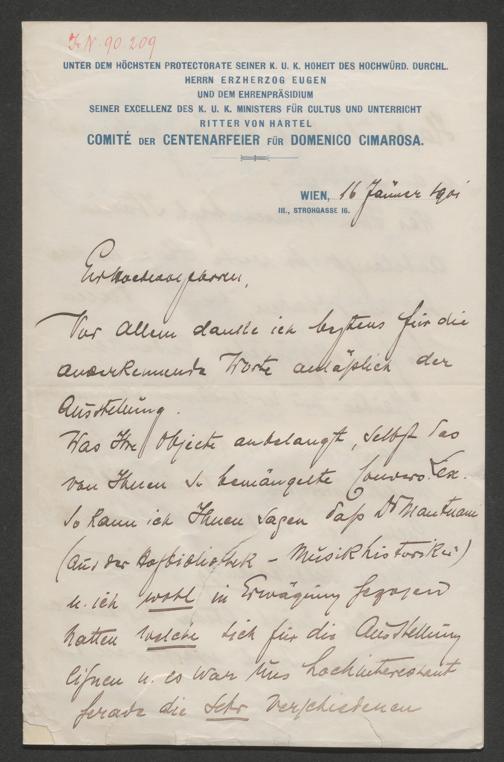 I. N. 90.209
UNTER DEM HÖCHSTEN PROTECTORATE SEINER K. U. K. HOHEIT DES HOCHWÜRD. DURCHL.
HERRN ERZHERZOG EUGEN
UND DEM EHRENPRÄSIDIUM
SEINER EXCELLENZ DES K. U. K. MINISTERS FÜR CULTUS UND UNTERRICHT
RITTER VON HARTEL
COMITÉ DER CENTENARFEIER FÜR DOMENICO CIMAROSA.
WIEN, 16 Jänner 1901
III., STROHGASSE 16.
Euer Hochwolgeboren,
Vor allem danke ich bestens für die
anerkennende Worte anläßlich der
Ausstellung.
Was Ihre Objecte anbelangt, selbst das
von Ihnen so bemängelte Convers. Lex.
So kann ich Ihnen sagen daß Dr Mantuani
(aus der Hofbibliothek – Musikhistoriker)
u. ich wohl in Erwägung gezogen
hatten welche sich für die Ausstellung
eignen u. es war uns hochinteressant
gerade die sehr verschiedenen